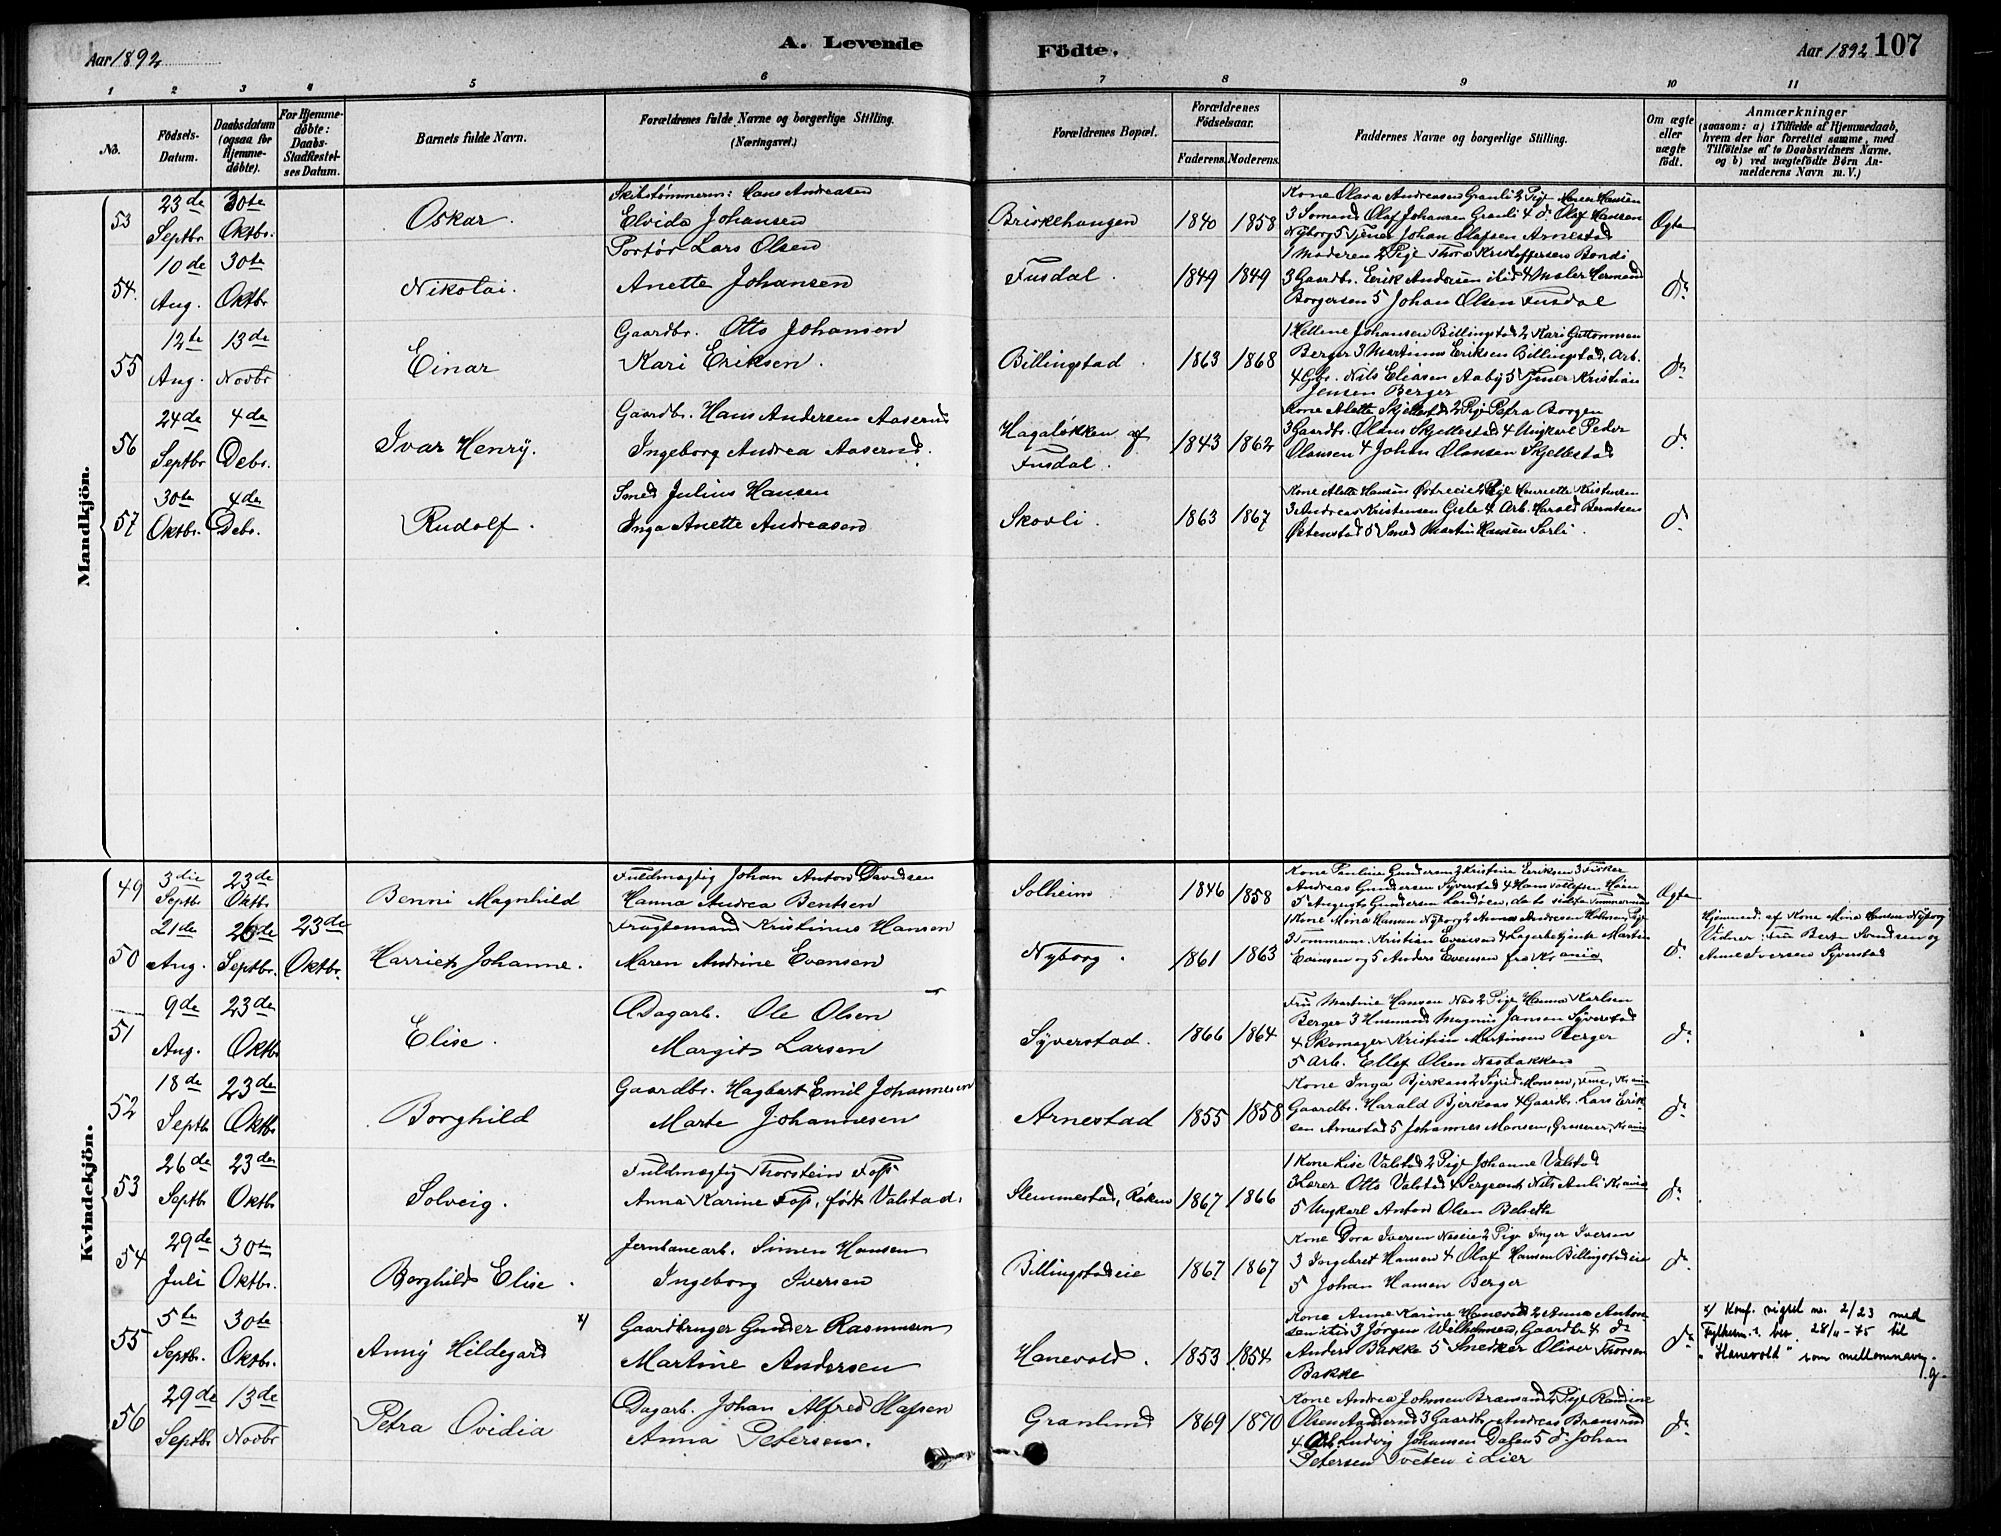 Aar 1892
A. Levende
Födte.
Aar 1892 107
1 2 3 4 5 6 7 8 9 10 11
No.
Födsels-Datum.
Daabsdatum (ogsaa for Hjemmedøbte).
For Hjemmedøbte: Daabs-Stadfæstelses Datum.
Barnets fulde Navn.
Forældrenes fulde Navne og borgerlige Stilling. (Næringsvei.)
Forældrenes Bopæl.
Forældrenes Födselsaar.
Faderens. Moderens.
Faddernes Navne og borgerlige Stilling.
Om ægte eller uægte födt.
Anmærkninger
(saasom: a) i Tilfælde af Hjemmedaab,
hvem der har forrettet samme, med
Tilföielse af to Daabsvidners Navne.
og b) ved uægtefødte Børn An-
melderens Navn m. V.)
Mandkjön.
53 23de Septbr 30te Oktbr. Oskar.
Skibstømmerm: Hans Andreasen
Elvida Johansen
Briskehaugen 1840 1858
Kone Olava Andreasen Granli 2 Pige Hansen
3 Sømand Olaf Johansen Granli 4 do Olaf Hansen
Nyborg 5 Tjener Johan Olafsen Arnestad
Ægte
54. 10de Aug. 30te Oktbr Nikolai.
Portør Lars Olsen
Anette Johansen
Fusdal. 1849 1849
1 Moderen 2 Pige Thora Kristoffersen Bondi
3 Gaardbr. Erik Andersen ibid 4 Maler Herman
Borgersen 5 Johan Olsen Fusdal
do
55 12te Aug. 13de Novbr Einar
Gaardbr. Otto Johansen
Kari Eriksen.
Billingstad 1863 1868
1 Hellene Johansen Billingstad 2 Kari Guttormsen
Berger 3 Martinus Eriksen Billingstad, Arb.
4 Gbr. Nils Eliasen Aaby 5 Tjener Kristian
Jensen Berger
do
56 24de Septbr 4de Debr. Ivar Henrÿ.
Gaardbr. Hans Andersen Aaserud
Ingeborg Andrea Aaserud.
Hagaløkken af
Fusdal. 1843 1862
Kone Alette Skjellestad 2 Pige Petra Borgen
3 Gaardbr. Olaus Skjellestad 4 Ungkarl Peder
Olausen 4 Johan Olausen Skjellestad
do
57 30te Oktbr. 4de Debr. Rudolf.
Smed Julius Hansen
Inga Anette Andreasen
Skovli. 1863 1867
Kone Alette Hansen 2 Pige Henriette Kristensen
3 Andreas Kristensen Gisle 4. Arb. Harald Berntsen
Østenstad 5 Smed Martin Hansen Sørli.
do
Kvindekjön.
49 3die Septbr 23de Oktbr Benni Magnhild
Fuldmægtig Johan Anton Davidsen
Hanna Andrea Bentsen
Solheim 1846 1858
Kone Pauline Gundersen 2 Kristine Eriksen 3 Fisker
Andreas Gundersen Syverstad 4 Hans
5 August Gundersen
Ægte
50 21de Aug. 26de Septbr. 23de Oktbr. Harriet Johanne.
Frugtemand Kristinus Hansen
Maren Andrine Evensen
Nyborg. 1861 1863
1 Kone Mina Hansen Nyborg 2 Anna Andresen
3 Tømmerm. Kristian Evensen 4 Lagerbetjent Martin
Evensen og 5 Anders Evensen fra Kr.ania
do
Hjemmed: af Kone Mina Hansen Nyborg
Vidner: Fru Berte Svendsen og
Anne Iversen Syverstad
51 9de Aug. 23de Oktbr Elise.
Dagarb. Ole Olsen
Margit Larsen
Sÿverstad. 1866 1864
Fru Martine Hansen Næs 2 Pige Hanna Karlsen
Berger 3 Husmand Magnus Jansen Syverstad
4 Skomager Kristian Martinsen Berger
5 Arb. Ellef Olsen Næsbakken
do
52 18de Septbr 23de Oktbr Borghild
Gaardbr. Hagbart Emil Johannesen
Marte Johannesen
Arnestad 1855 1858
Kone Inga Bjerkaas 2 Sigrid Hansen, Frue, Kr.ania
Gaardbr. Harald Bjerkaas 4 Gaardbr. Lars Erik-
sen Arnestad 5 Johannes Monsen, Grosserer, Kr.ania
do
53 26de Septbr 23de Oktbr Solveig.
Fuldmægtig Thorstein Foss
Anna Karine Foss, født Valstad.
Slemmestad, Røken 1867 1866
1 Kone Lise Valstad 2 Pige Johanne Valstad
3 Lærer Otto Valstad 4 Sergeant Nils Auli Kr.ania
5 Ungkarl Anton Olsen Belseth
do
54 29de Juli 30te Oktbr. Borghild Elise.
Jernbanearb. Simen Hansen
Ingeborg Iversen
Billingstadeie 1867 1867
Kone Dora Iversen Næseie 2 Pige Inger Iversen
3 Ingebret Hansen 4 Olaf Hansen Billingstadeie
5 Johan Hansen Berger
do
55 5te Septbr. 30te Oktbr. Anny Hildegard x)
Gaardbruger Gunder Rasmussen
Martine Andersen
Hanevold. 1853 1854
Kone Anne Karine Hanevold 2 Anna Anton-
sen ibid 3 Jörgen Wilhelmsen, Gaardbr. 4 do
Anders Bakke 5 Snedker Oliver Thorsen
Bakke
do
x) Konf. vigsel nr. 2/23 med
Fylkesm.s bev. 28/11-75 til
"Hanevold" som mellomnavn.
56 29de Septbr 13de Novbr Petra Ovidia
Dagarb. Johan Alfred Olafsen
Anna Petersen.
Granlund 1869 1870
Kone Andrea Johnsen 2 Pige Randine
Olsen 3 Gaardbr. Andreas
4 Arb. Ludvig Johansen Dalen 5 do Johan
Petersen Tveten i Lier
do